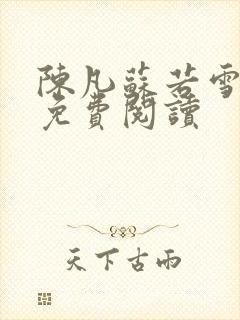 陳凡蘇若雪
免費閱讀
天下古雨